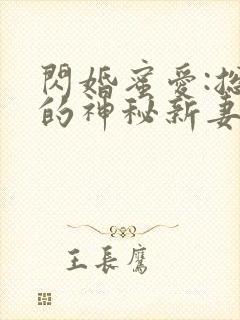 閃婚蜜愛:總
的神秘新妻
王長鷹